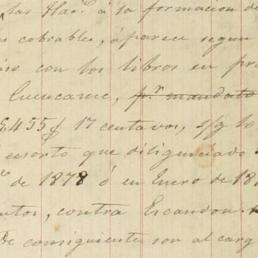 las Hac.s á la formacion de
cobrables, aparece segun
con los libros en pr
Cuencamé, p.r mandato
$455$ 17 centavos, s/g lo
escrito que diligenciado
de 1878 ó en Enero de 18
tos, contra Escandon
De consiguiente son al carg